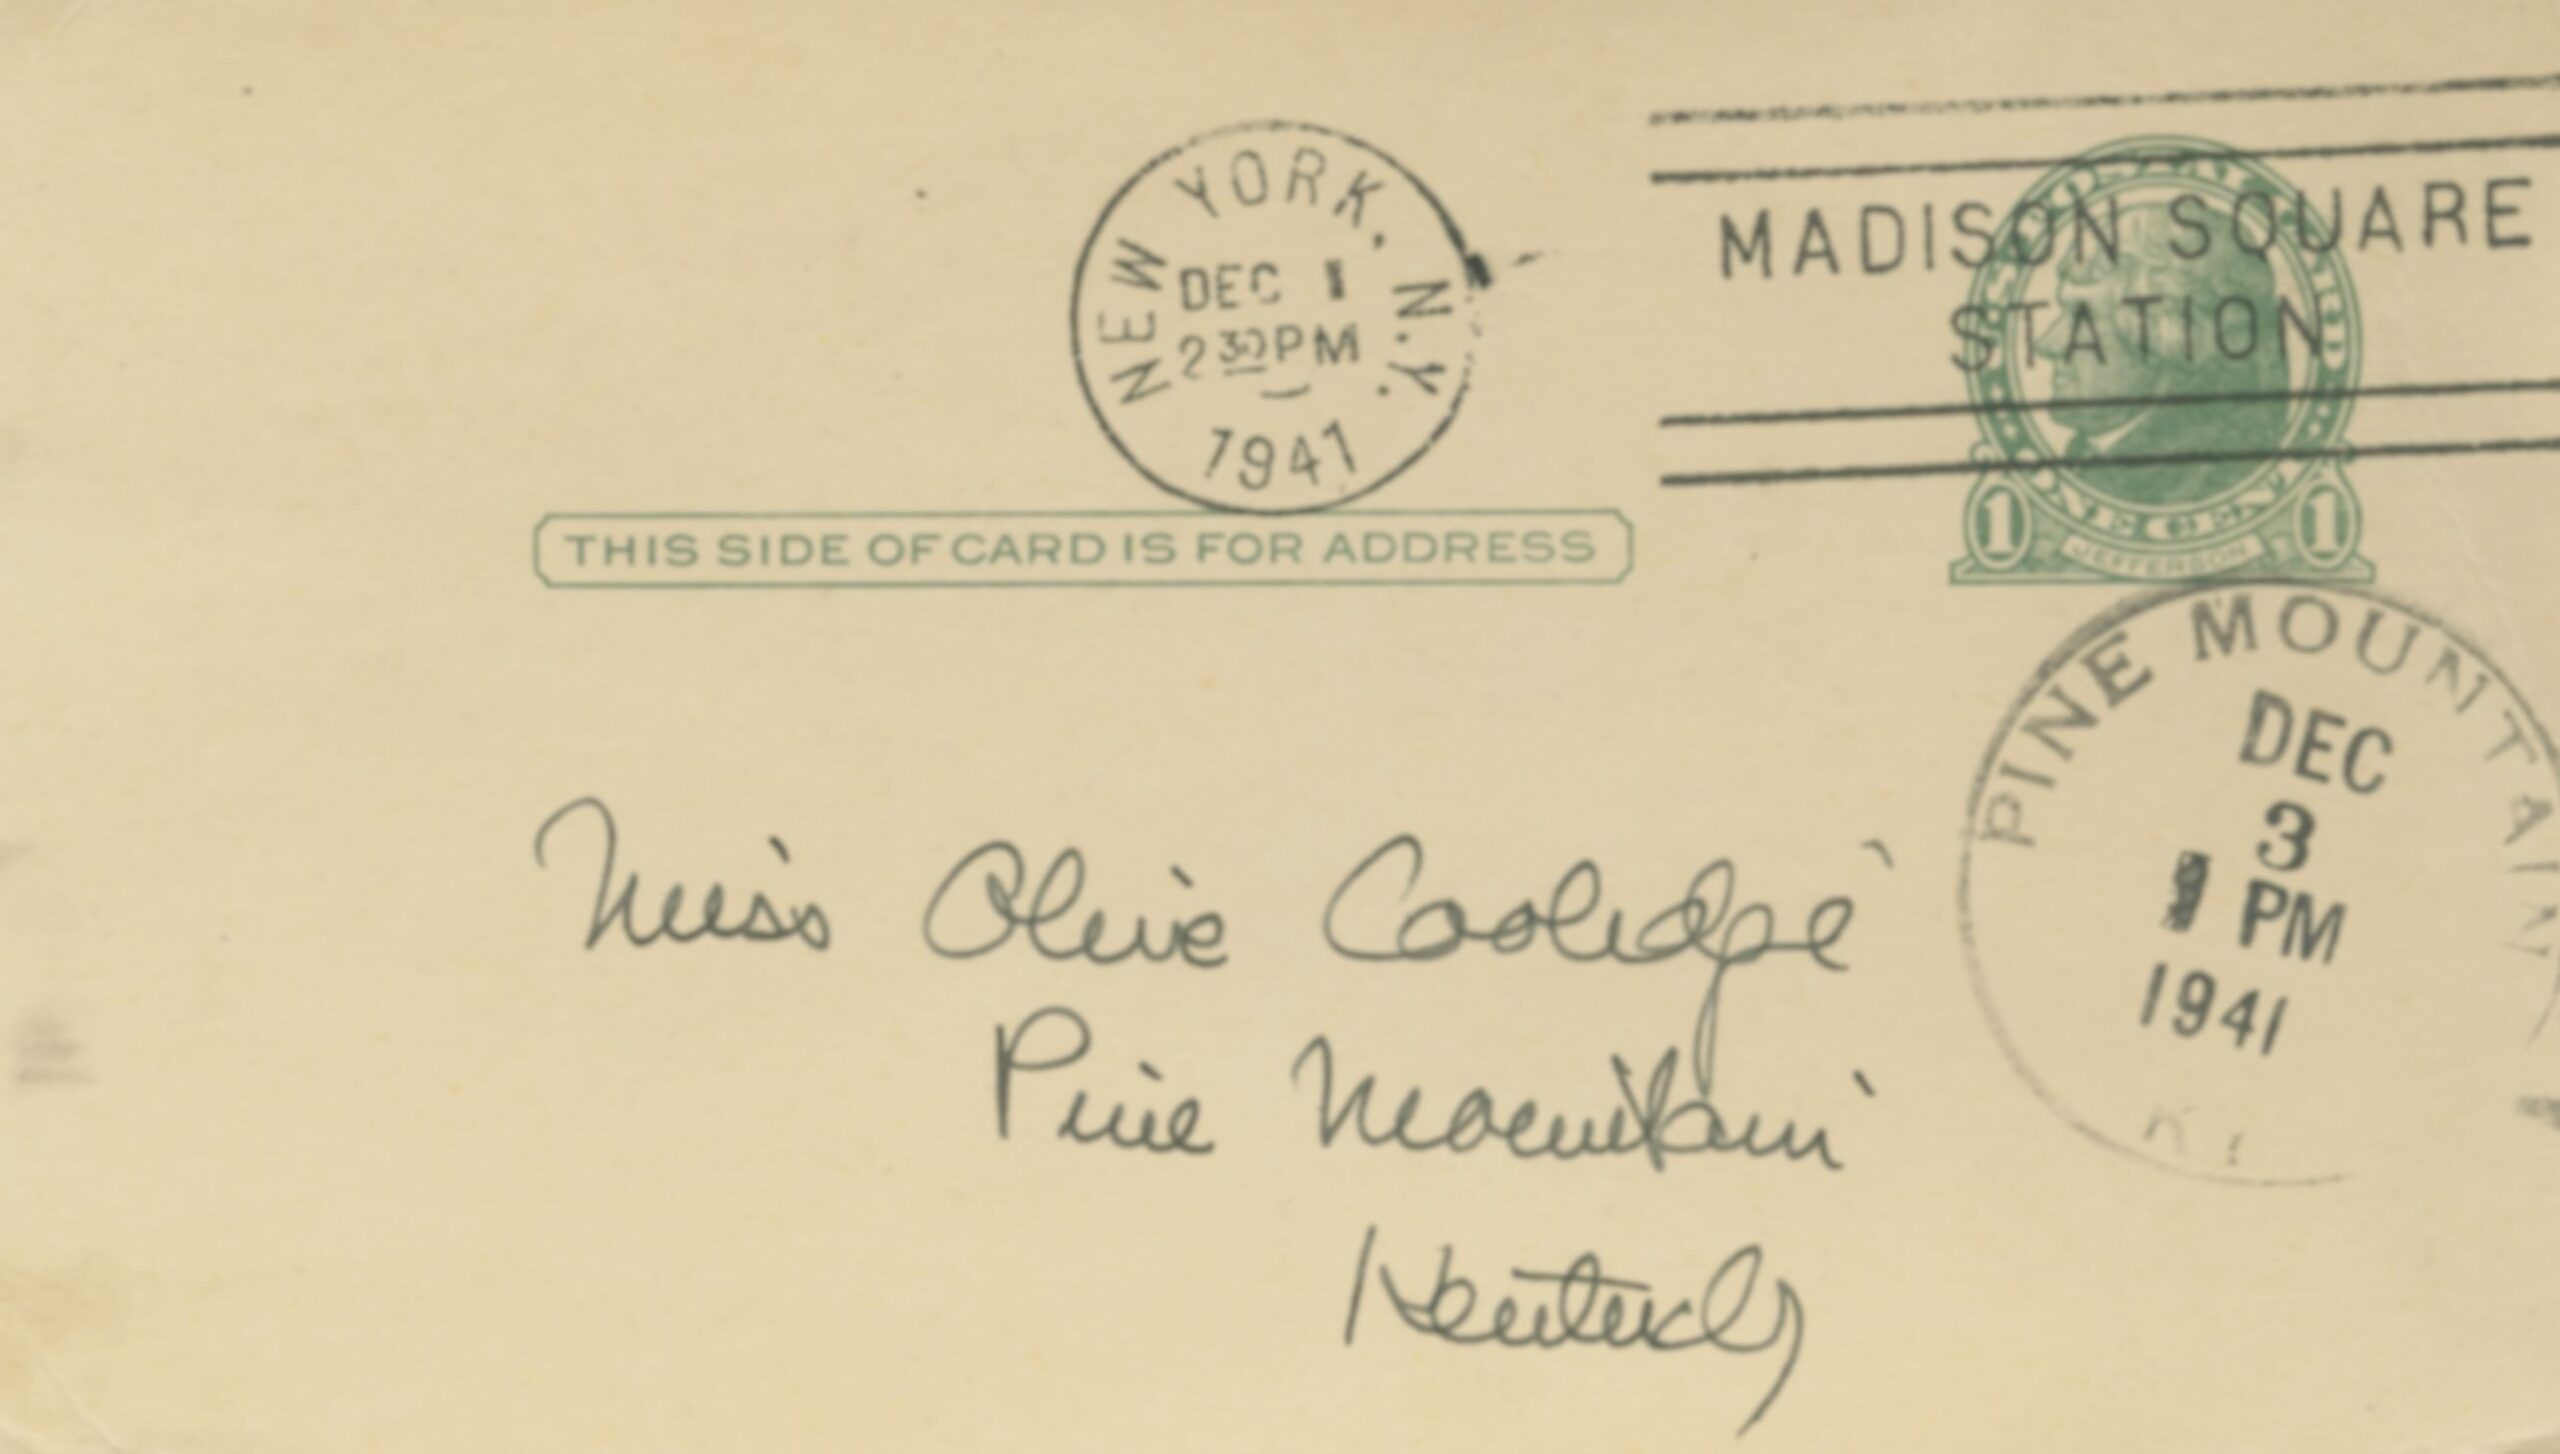 NEW YORK, N.Y.
DEC 1
2 30 PM
1941
MADISON SQUARE
STATION
U.S. POSTAL CARD
ONE CENT
1 JEFFERSON 1
THIS SIDE OF CARD IS FOR ADDRESS
PINE MOUNTAIN
DEC
3
PM
1941
Miss Olive Coolidge
Pine Mountain
Kentucky